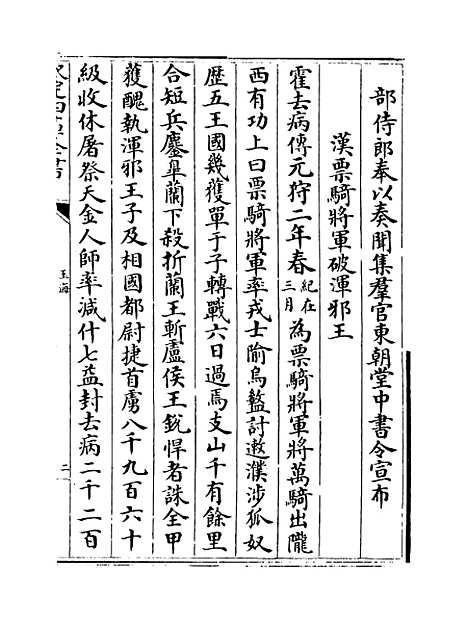 部侍郎奉以奏聞集羣官東朝堂中書令宣布
漢票騎將軍破渾邪王
霍去病傳元狩二年春紀在三月為票騎將軍將萬騎出隴
西有功上曰票騎將軍率戎士隃烏盭討遬濮涉狐奴
歴五王國幾獲單于子轉戰六日過焉支山千有餘里
合短兵鏖臯蘭下殺折蘭王斬盧侯王銳悍者誅全甲
獲醜執渾邪王子及相國都尉捷首虜八千九百六十
級收休屠祭天金人師率減什七益封去病二千二百
欽定四庫全書
玉海
二